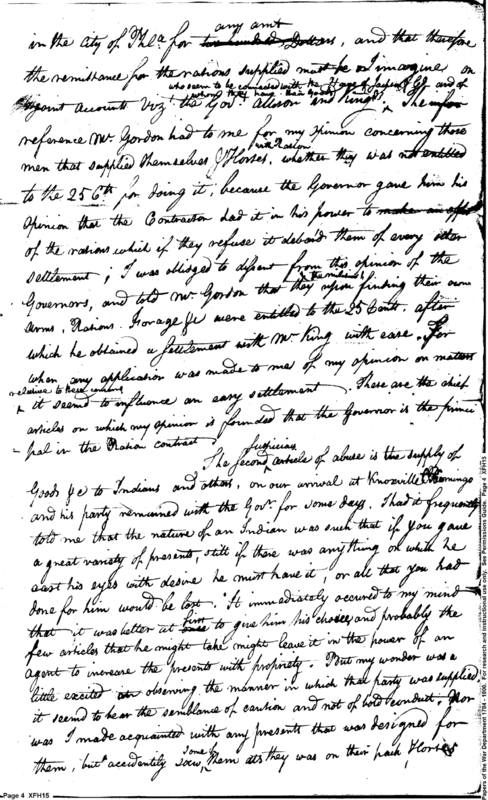 any amt
in the City of Phl.a for two hundred Dollars, and that therefore
the remittance for the rations supplied must be as I imagine on
who seem to be connected with the
accounts Viz.t the Gov.r Allison and King &c. The
reference Mr. Gordon had to me for my opinion concerning those
with Rations
men that supplied themselves & Horses, whether they was not entitled
to the 25 Cts. for doing it, because the Governor gave him his
opinion that the Contractor had it in his power to make an offer
of the rations which if they refuse it debar'd them of every other
settlement; I was obliged to dissent from this opinion of the
the militia
Governors, and told Mr. Gordon that they upon finding their own
Arms, Rations, Forage &c were entitled to the 25 Cents. after
which he obtained a settlement with Mr. King with ease. For
when any application was made to me of my opinion on matters
relative to these concerns
it seemd to influence an easy settlement. These are the chief
articles on which my opinion is founded that the Governor is the princi
pal in the Ration contract
suspicious
The Second article of abuse is the supply of
Goods &c to Indians and others, on our arrival at Knoxville Piomingo
and his party remained with the Gov.r for some days. I had it frequently
told me that the nature of an Indian was such that if you gave
a great variety of presents, still if there was anything on which he
cast his eyes with desire he must have it, or all that you had
done for him would be lost. It immediately occured to my mind
first
that it was better at to give him his choice, and probably the
few articles that he might take might leave it in the power of an
agent to increase the presents with propriety. But my wonder was a
little excited on observing the manner in which that party was supplied
it seemd to bear the semblance of caution and not of bold conduit. Nor
was I made acquainted with any presents that was designed for
some
them, but accidently saw them as they was on their pack Horses
Page 4 XFH15
Papers of the War Department 1784 - 1800. For research and instructional use only. See Permissions Guide. Page 4 XFH15